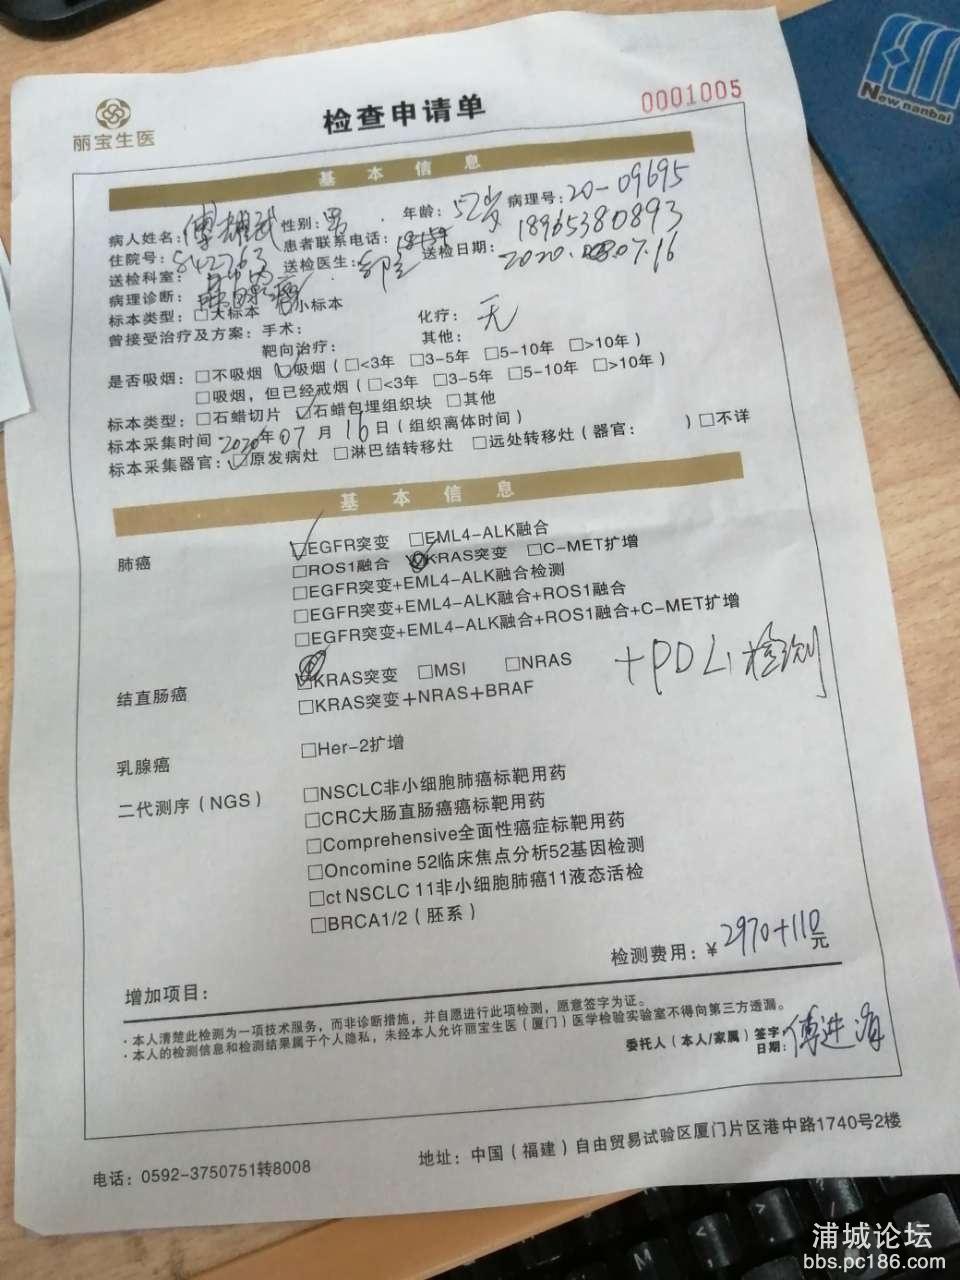 丽宝生医
检查申请单
0001005
New nanbai
基本信息
病人姓名：傅雄武 性别：男 年龄：52岁 病理号：20-09695
住院号：842763 患者联系电话：18965380893
送检科室： 送检医生： 送检日期：2020.07.16
病理诊断：
标本类型：□大标本 ☑小标本
曾接受治疗及方案：手术： 化疗：无
靶向治疗： 其他：
是否吸烟：□不吸烟 ☑吸烟（□<3年 □3-5年 □5-10年 □>10年）
□吸烟，但已经戒烟（□<3年 □3-5年 □5-10年 □>10年）
标本类型：□石蜡切片 ☑石蜡包埋组织块 □其他
标本采集时间 2020年07月16日（组织离体时间）
标本采集器官：☑原发病灶 □淋巴结转移灶 □远处转移灶（器官： ）□不详
基本信息
肺癌 ☑EGFR突变 □EML4-ALK融合
□ROS1融合 KRAS突变 □C-MET扩增
□EGFR突变+EML4-ALK融合检测
□EGFR突变+EML4-ALK融合+ROS1融合
□EGFR突变+EML4-ALK融合+ROS1融合+C-MET扩增
结直肠癌 KRAS突变 □MSI □NRAS +PDL1检测
□KRAS突变+NRAS+BRAF
乳腺癌 □Her-2扩增
二代测序（NGS） □NSCLC非小细胞肺癌标靶用药
□CRC大肠直肠癌癌标靶用药
□Comprehensive全面性癌症标靶用药
□Oncomine 52临床焦点分析52基因检测
□ct NSCLC 11非小细胞肺癌11液态活检
□BRCA1/2（胚系）
检测费用：￥2970+110元
增加项目：
·本人清楚此检测为一项技术服务，而非诊断措施，并自愿进行此项检测，愿意签字为证。
·本人的检测信息和检测结果属于个人隐私，未经本人允许丽宝生医（厦门）医学检验实验室不得向第三方透漏。
委托人（本人/家属）签字 傅进
日期：
电话：0592-3750751转8008 地址：中国（福建）自由贸易试验区厦门片区港中路1740号2楼
M
浦城论坛
bbs.pc186.com